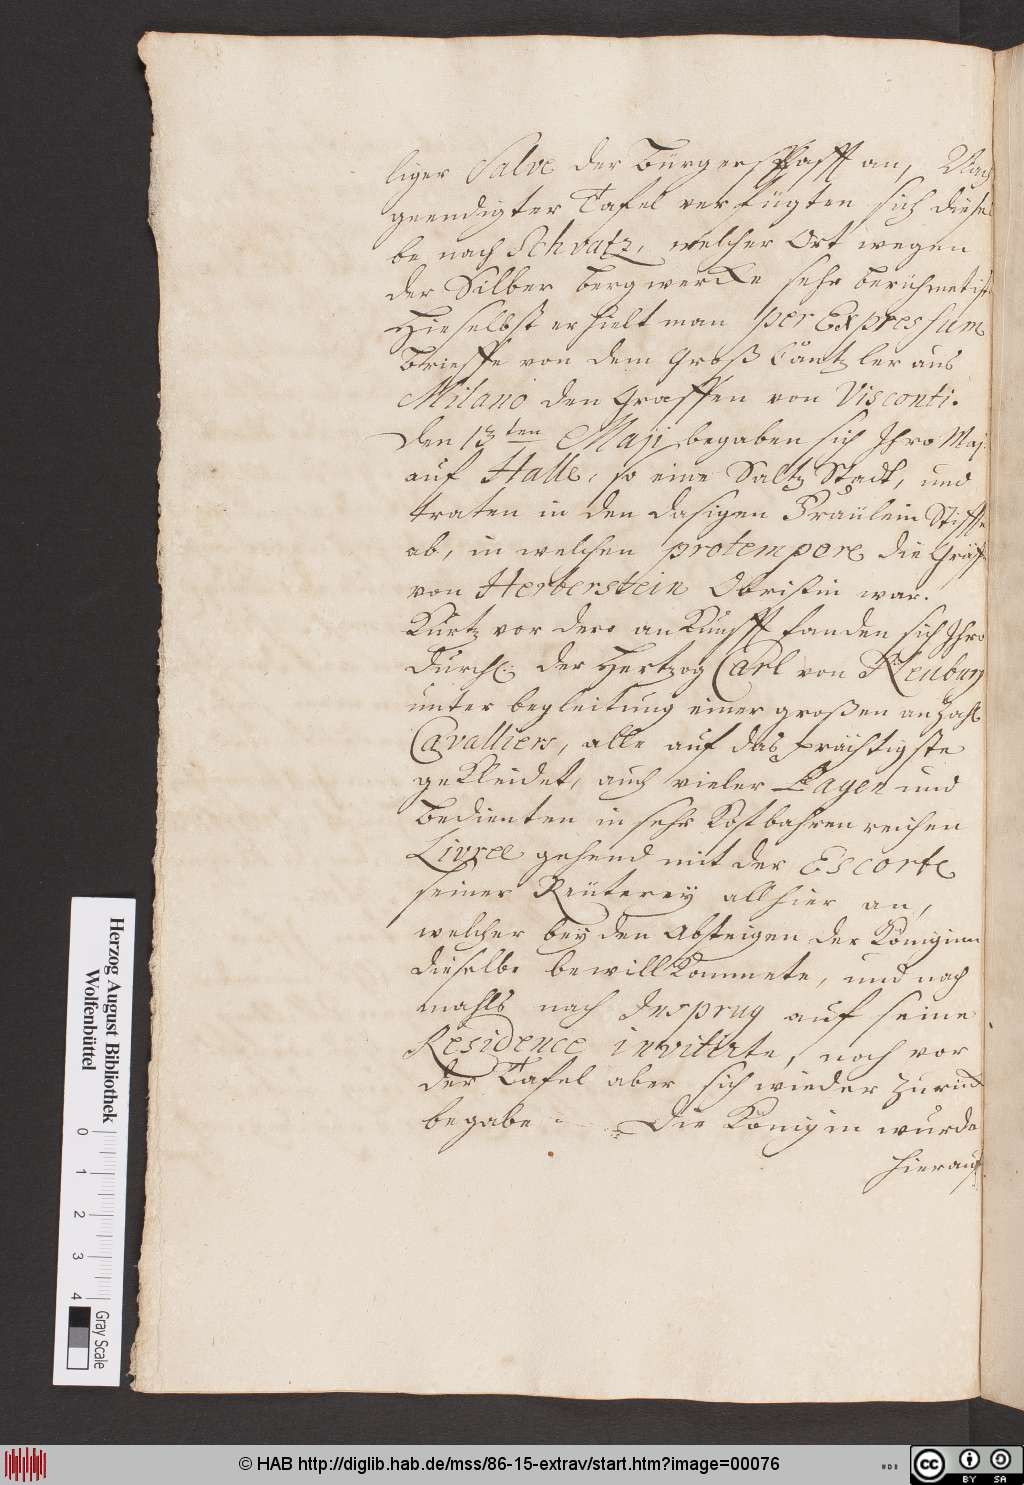 liger Salve der Bürgerschafft an, Nach
geendigter Tafel verfügten sich diesel
be nach Schvatz, welcher Ort wegen
der Silber bergwercke sehr berühmt ist
Hieselbst erhielt man per Expressum
Brieffe von dem Groß Cantzler aus
Milano den Graffen von Visconti.
Den 13ten Maji begaben sich Ihro Maj:
auf Halle, so eine Saltz Stadt, und
traten in den dasigen Fräulein Stiffte
ab, in welchen protempore die Gräff
von Herberstein Obristin war.
Kurtz vor dero anKunfft fanden sich Ihro
Durchl: der Hertzog Carl von Neuburg
unter begleitung einer großen anzahl
Cavalliers, alle auf das prächtigste
geKleidet, auch vieler Pagen und
Bedienten in sehr Kostbahren reichen
Livree gehend mit der Escorte
seiner Reüterey allhier an,
welcher bey den Absteigen der Königinn
dieselbe bewillKommete, und noch
mahls nach Insprug auf seine
Residence invitirte, noch vor
der Tafel aber sich wieder zurück
begabe. Die Königin wurde
hierauf
Herzog August Bibliothek
Wolfenbüttel
0 1 2 3 4
Gray Scale
© HAB http://diglib.hab.de/mss/86-15-extrav/start.htm?image=00076
cc BY SA